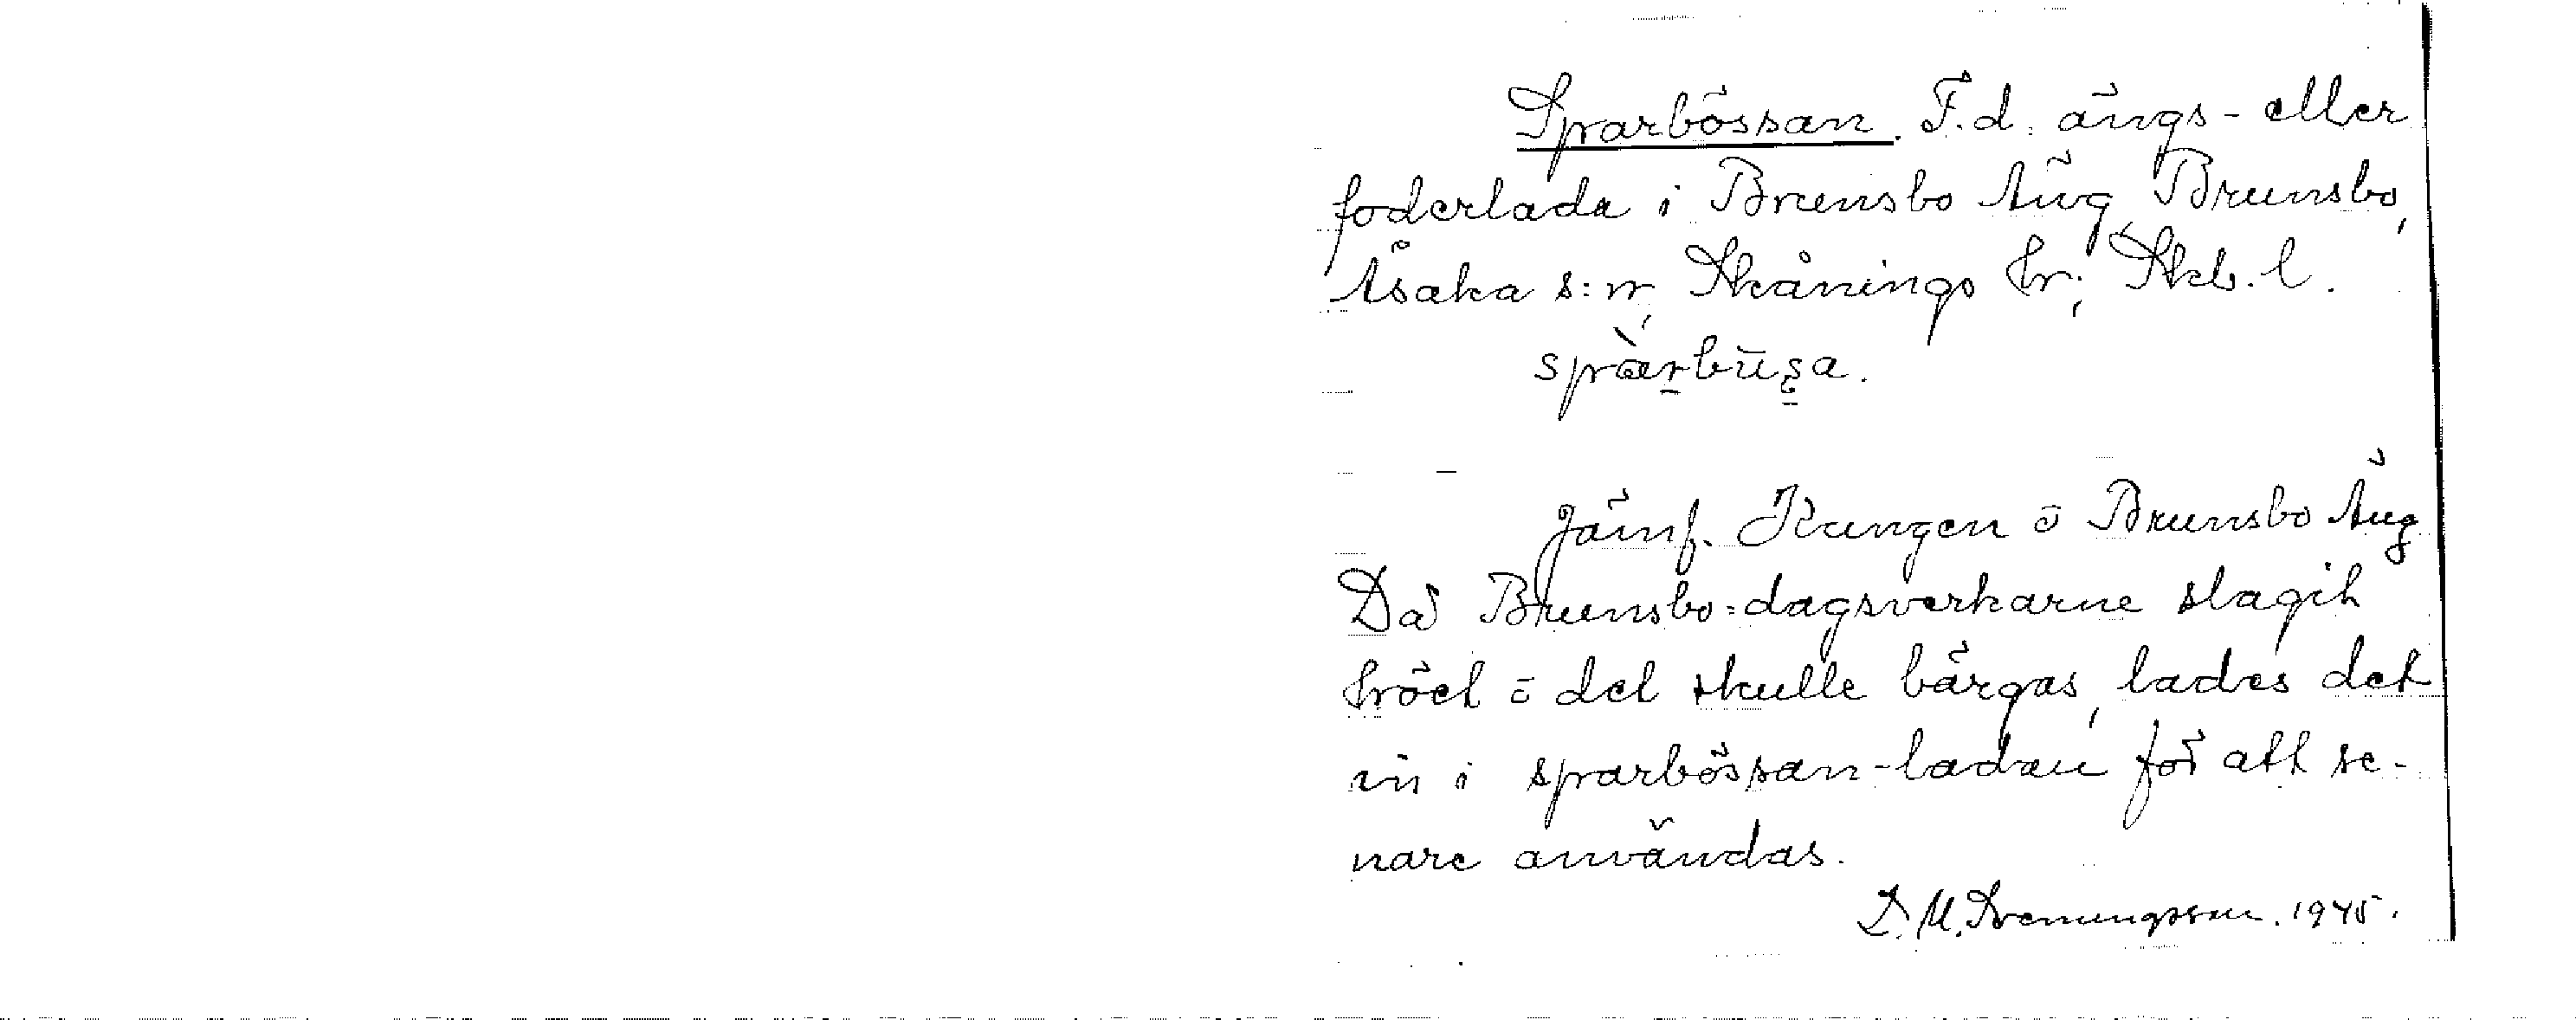 Sparbössan. F.d. ängs- eller
foderlada i Brunsbo Äng, Brunsbo,
Åsaka s:n, Skånings hr; Skb. l.
spàrbūsa.
Jämf. Kungen ō Brunsbo Äng
Då Brunsbo-dagsverkarne slagit
höet ō det skulle bärgas, lades det
in i sparbössan-ladan för att se-
nare användas.
1945.